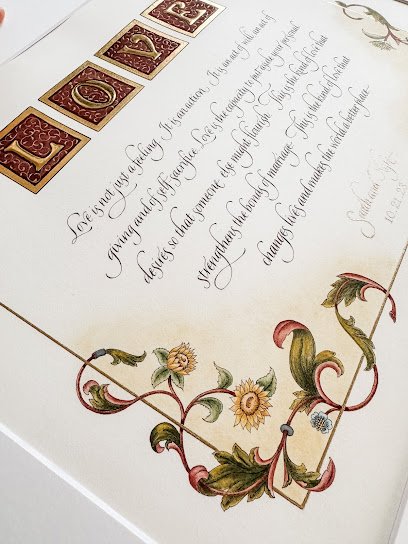 LOVE
Love is not just a feeling. It is an action. It is an act of will, an act of
giving and of self-sacrifice. Love is the capacity to put aside your personal
desires so that someone else might flourish. This is the kind of love that
strengthens the bonds of marriage. This is the kind of love that
changes lives and makes the world a better place.